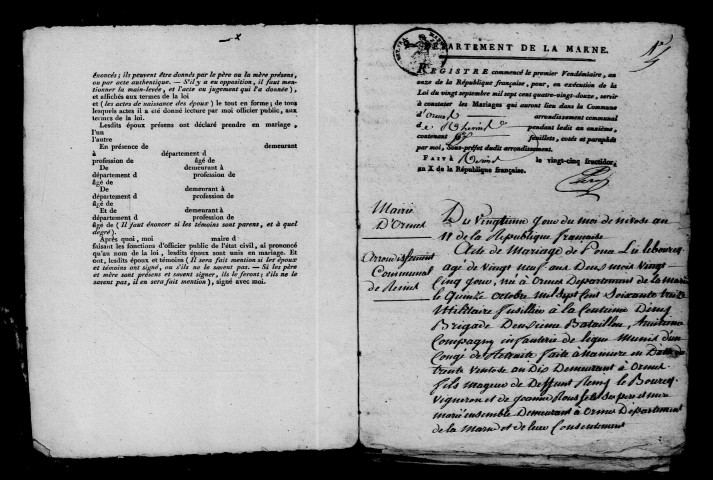 énoncés ; ils peuvent être donnés par le père ou la mère présens,
ou par acte authentique. — S'il y a eu opposition, il faut men-
tionner la main-levée, et l'acte ou jugement qui l'a donnée ),
et affichés aux termes de la loi
et ( les actes de naissance des époux ) le tout en forme ; de tous
lesquels actes il a été donné lecture par moi officier public, aux
termes de la loi.
Lesdits époux présens ont déclaré prendre en mariage,
l'un
l'autre
En présence de demeurant
à département d
profession de âgé de
De demeurant à
département d profession de
âgé de
De demeurant à
département d profession de
âgé de
Et de demeurant à
département d profession de
âgé de ( Il faut énoncer si les témoins sont parens, et à quel
degré ).
Après quoi, moi maire d
faisant les fonctions d'officier public de l'état civil, ai prononcé
qu'au nom de la loi, lesdits époux sont unis en mariage. Et
ont, lesdits époux et témoins ( Il sera fait mention si les époux
et témoins ont signé, ou s'ils ne le savent pas. — Si les père
et mère sont présens et savent signer, ils le feront ; s'ils ne le
savent pas, il en sera fait mention ), signé avec moi.
DÉPARTEMENT DE LA MARNE.
REGISTRE commencé le premier Vendémiaire, an
onze de la République française, pour, en exécution de la
Loi du vingt septembre mil sept cent quatre-vingt-douze, servir
à constater les Mariages qui auront lieu dans la Commune
d'Ormes arrondissement communal
de Reims pendant ledit an onzième,
contenant feuillets, cotés et paraphés
par moi, Sous-préfet dudit arrondissement.
FAIT à Reims le vingt-cinq fructidor,
an X de la République française.
Mairie
D'Ormes
Arrondissement
Communal
de Reims
Du Vingtieme jour du moi de nivose an
11 de la Republique francaise
Acte de Mariage de lebourcq
age de vingt neuf ans Deux mois vingt
Cinq jour, né à Ormes Departement de la marne
le Quinze octobre mil sept Cent Soixante treize
Militaire fusillier à la Centieme Demi
Brigade Deuxieme Bataillon,
Compagny infanterie de ligne Munis d'un
Congé de Retraite faite à Namure en Date du
trente ventose an Dix Demeurant à Ormes
fils mageur de Deffunt Remy le Bourcq
Vigneron et de Jeanne ses pere et mere
marié ensemble Demeurant à Ormes Departement
de la Marne et de leur Consentement